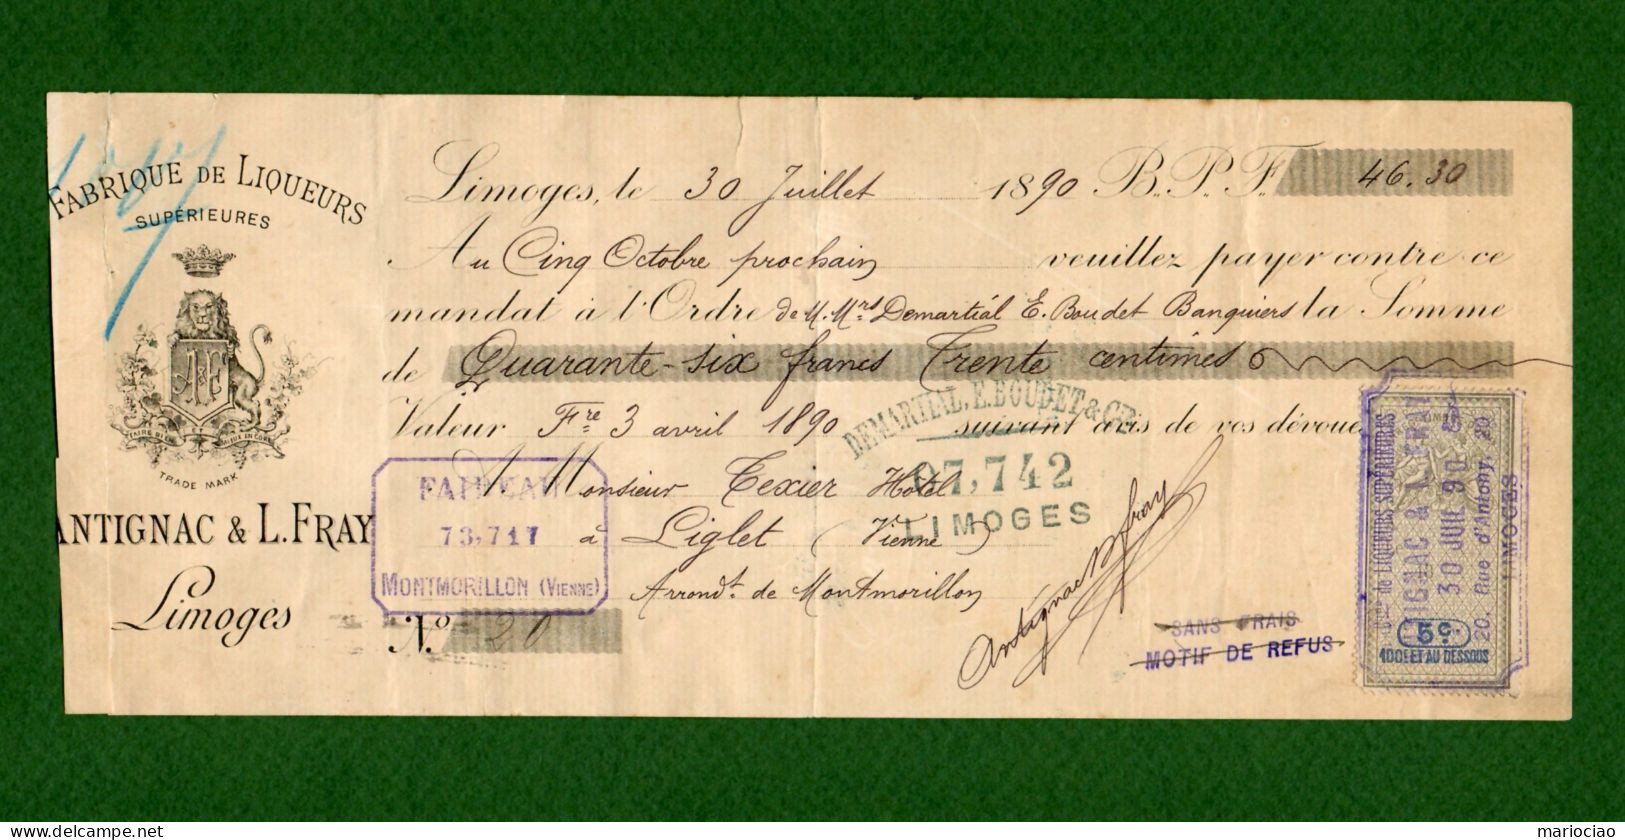 FABRIQUE DE LIQUEURS
SUPÉRIEURES
TRADE MARK
ANTIGNAC & L. FRAY
Limoges
Limoges, le 30 Juillet 1890 B.P.F. 46.30
Au Cinq Octobre prochain veuillez payer contre ce
mandat à l'Ordre de M.Mrs Demartial E. Boudet Banquiers la Somme
de Quarante-six francs Trente centimes
Valeur Fre 3 avril 1890 suivant avis de vos dévoués
A Monsieur Texier Hôtel
à Liglet (Vienne)
Arrondt. de Montmorillon
No. 20
73,717
MONTMORILLON (VIENNE)
DEMARTIAL, E. BOUDET & CIE
97,742
LIMOGES
Antignac & Fray
SANS FRAIS
MOTIF DE REFUS
de LIQUEURS SUPÉRIEURES
ANTIGNAC & L. FRAY
30 JUIL 90
20, Rue d'Antony, 20
LIMOGES
5c.
100F ET AU DESSOUS
www.delcampe.net
mariociao